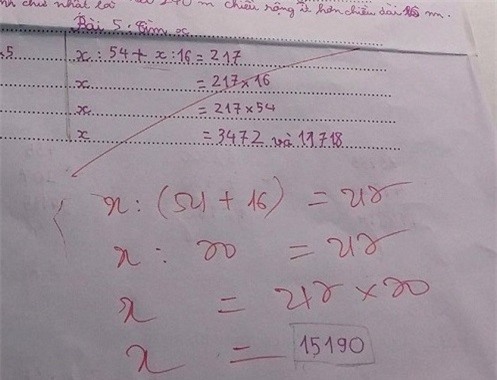 chữ nhật là 240 m chiều rộng ít hơn chiều dài m.
Bài 5. Tìm x
x5 x : 54 + x : 16 = 217
x = 217 x 16
x = 217 x 54
x = 3472 và 11718
x : (54 + 16) = 217
x : 70 = 217
x = 217 x 70
x = 15190